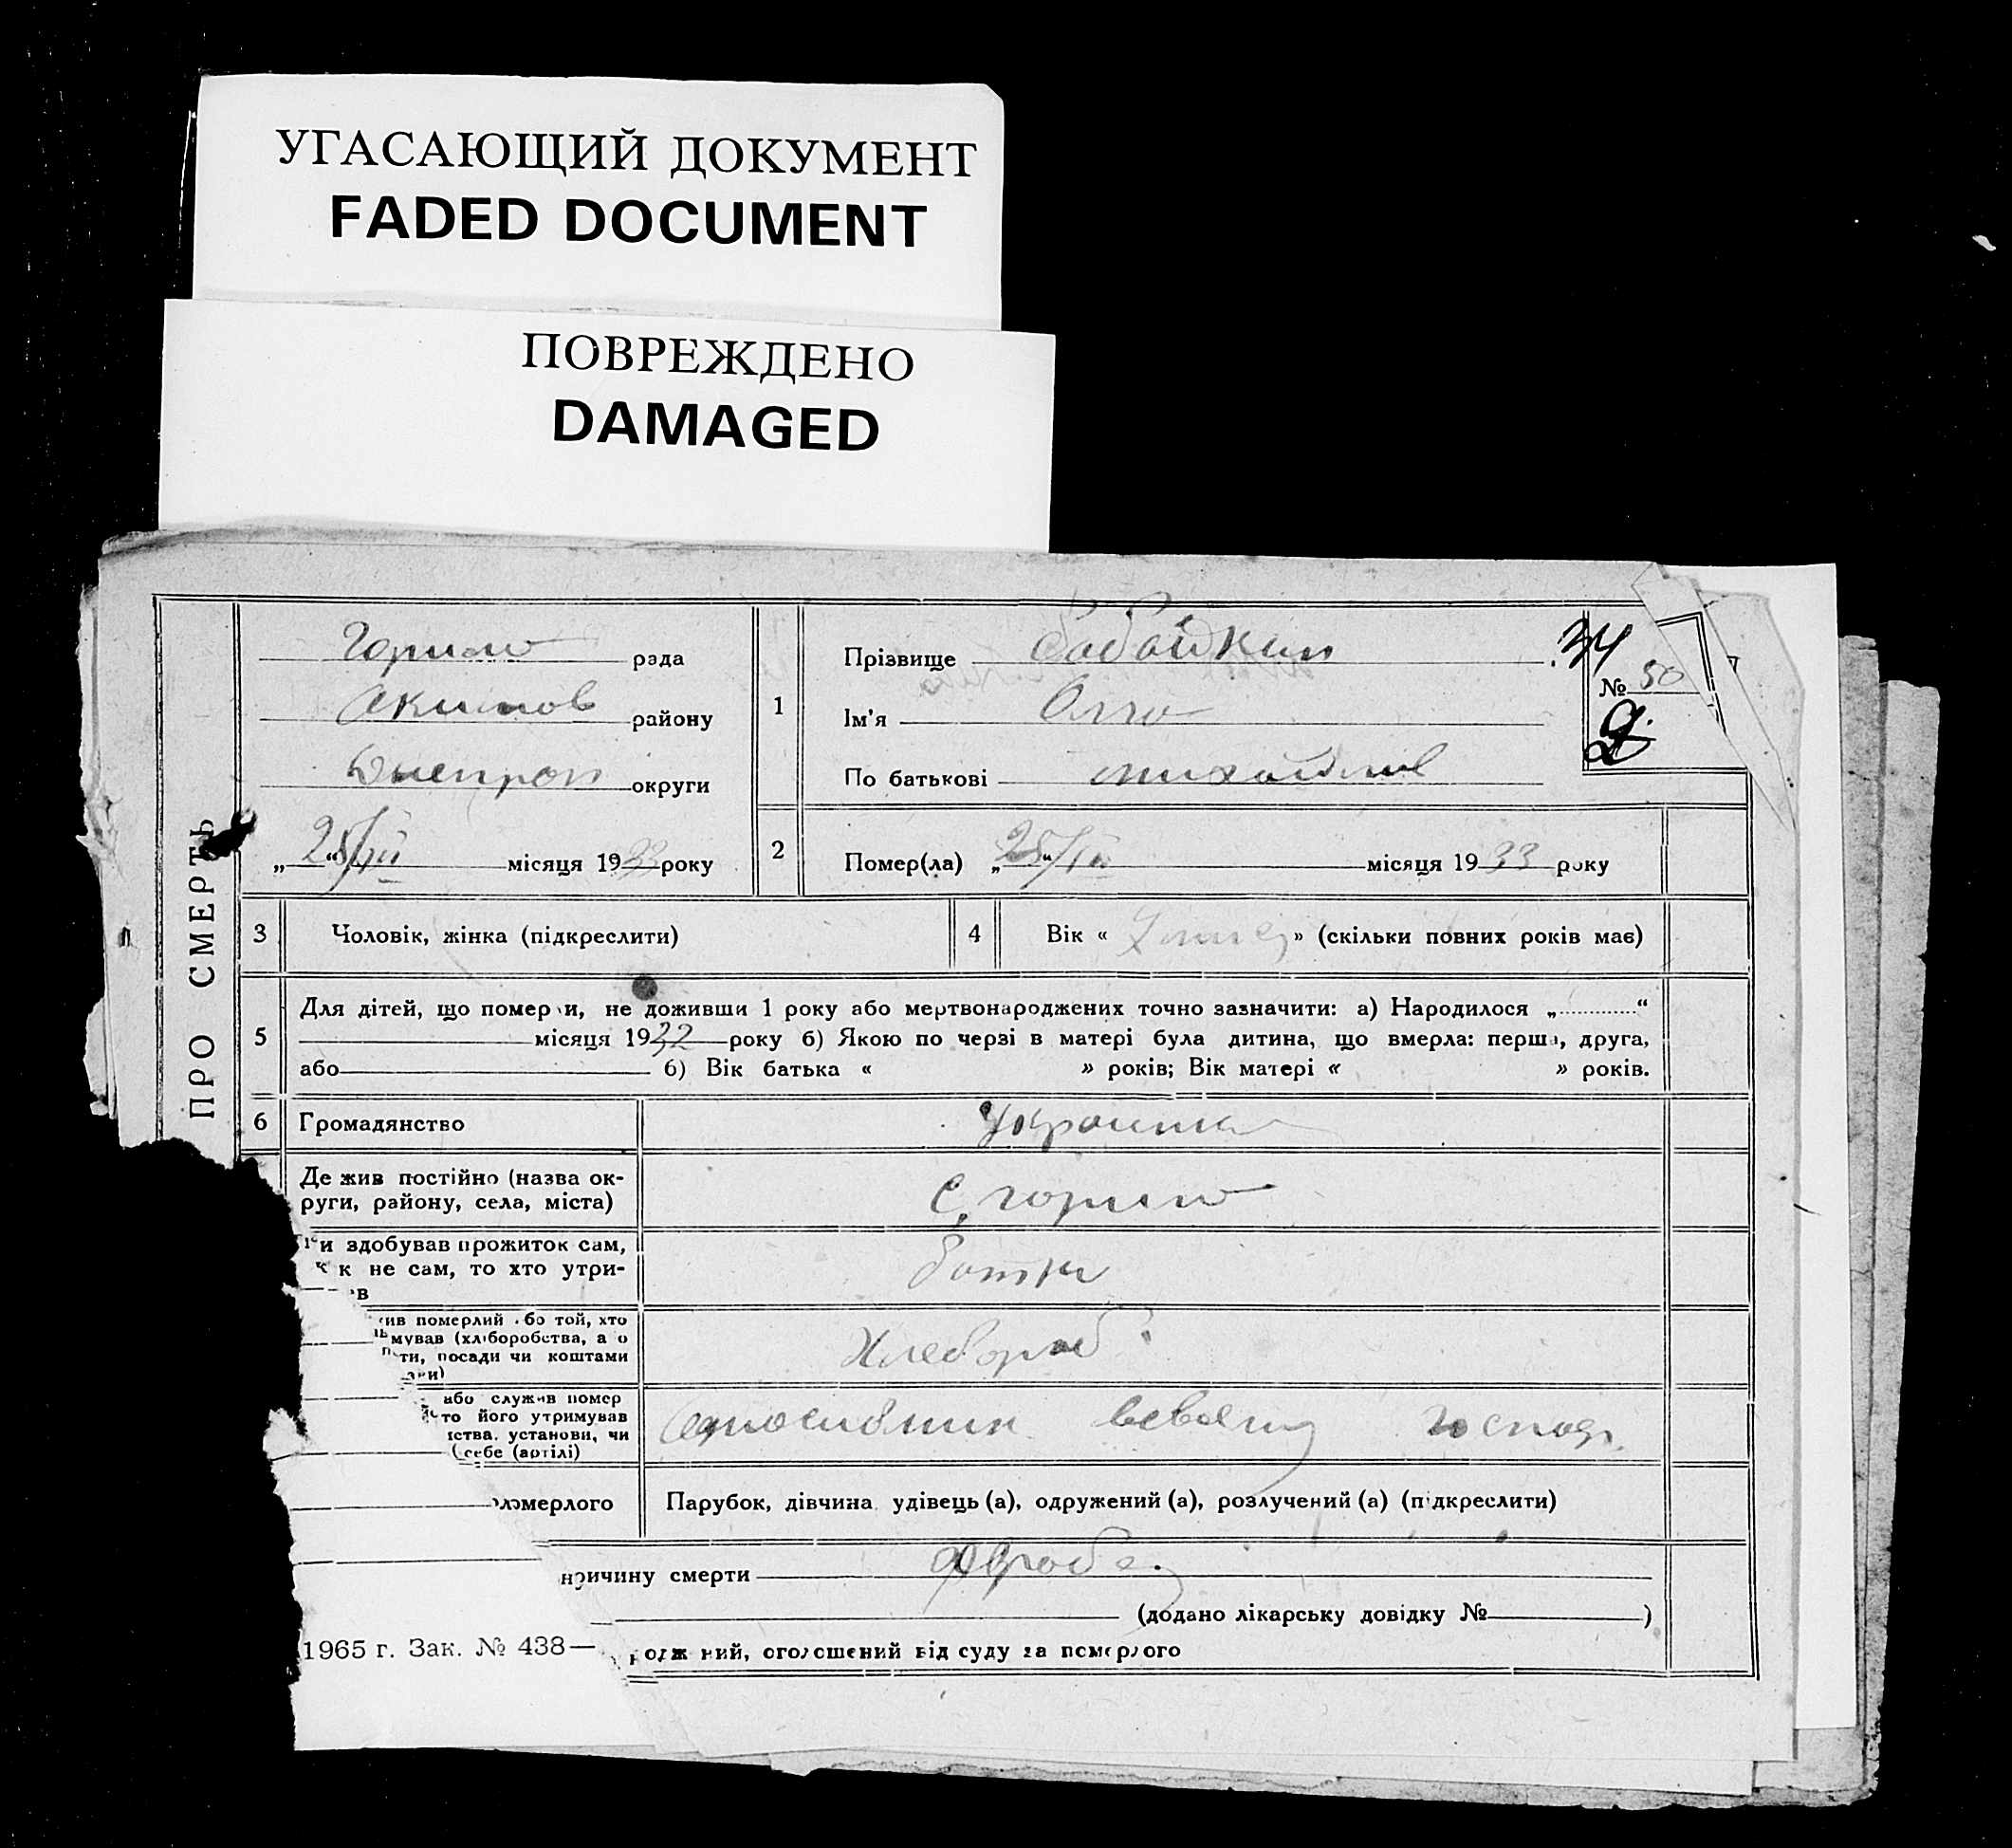 УГАСАЮЩИЙ ДОКУМЕНТ
FADED DOCUMENT
ПОВРЕЖДЕНО
DAMAGED
ПРО СМЕРТЬ
рада
Акимов району
Днепроп округи
„28/ІІІ місяця 1933 року
1
Прізвище Бабайкин
Ім'я
По батькові Михайлов
34
№ 50
2
Помер(ла) „ місяця 1933 року
3 Чоловік, жінка (підкреслити)
4 Вік « » (скільки повних років має)
5 Для дітей, що померли, не доживши 1 року або мертвонароджених точно зазначити: а) Народилося „............“
місяця 1932 року б) Якою по черзі в матері була дитина, що вмерла: перша, друга,
або б) Вік батька « » років; Вік матері « » років.
6 Громадянство Украинка
Де жив постійно (назва ок-
руги, району, села, міста) с.
и здобував прожиток сам,
к не сам, то хто утри-
в
батьки
ив померлий або той, хто
мував (хліборобства, а о
ти, посади чи коштами
Хлебороб
або служив помер
то його утримував
ства, установи, чи
себе (артілі)
господ.
померлого Парубок, дівчина, удівець (а), одружений (а), розлучений (а) (підкреслити)
причину смерти
(додано лікарську довідку № )
1965 г. Зак. № 438—
ний, оголошений від суду за померлого